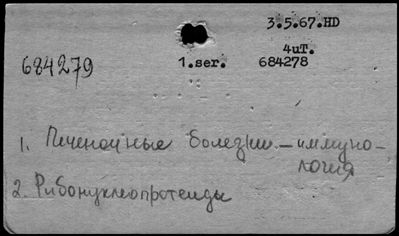 3.5.67.HD
4uT.
684279 1.ser. 684278
1. Печеночные болезни - иммуно-
логия
2. Рибонуклеопротеиды